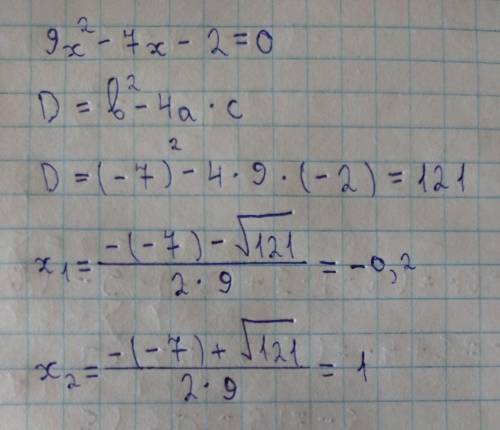 9x² - 7x - 2 = 0
D = b² - 4a · c
D = (-7)² - 4 · 9 · (-2) = 121
x₁ = (-(-7) - √121) / (2 · 9) = -0,2
x₂ = (-(-7) + √121) / (2 · 9) = 1